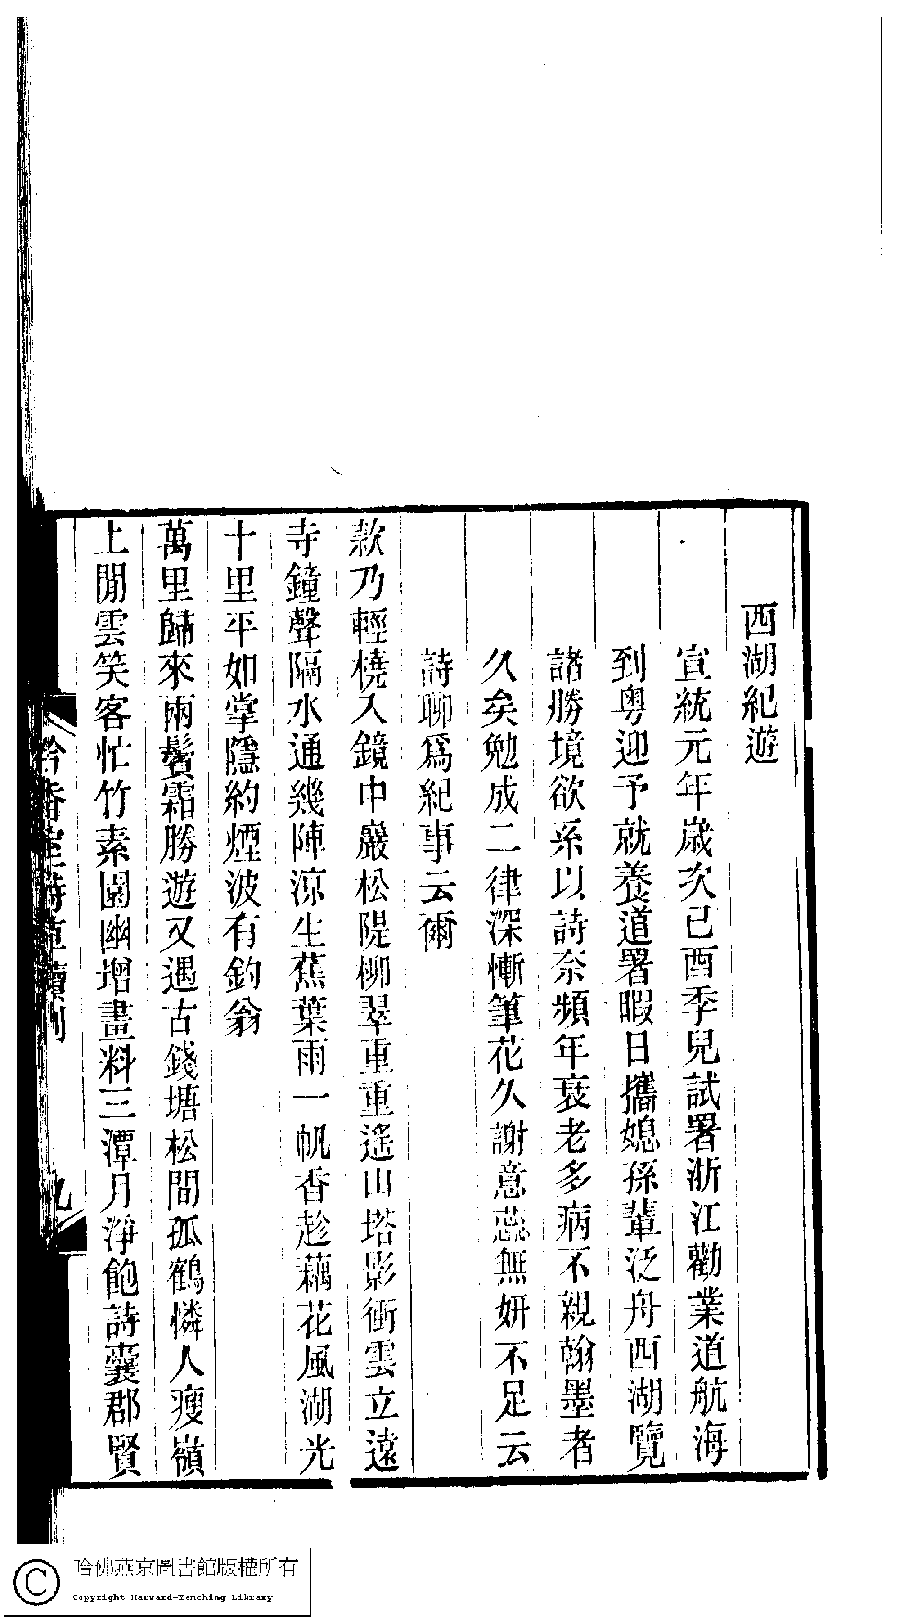 西湖紀遊
宣統元年歲次己酉季兒試署浙江勸業道航海
到粤迎予就養道署暇日攜媳孫輩泛舟西湖覽
諸勝境欲系以詩奈頻年衰老多病不親翰墨者
久矣勉成二律深慚筆花久謝意蕊無妍不足云
詩聊爲紀事云爾
款乃輕橈入鏡中巖松隄柳翠重重遙山塔影衝雲立遠
寺鐘聲隔水通幾陣涼生蕉葉雨一帆香趁藕花風湖光
十里平如掌隱約煙波有釣翁
萬里歸來兩鬢霜勝遊又遇古錢塘松間孤鶴憐人瘦嶺
上閒雲笑客忙竹素園幽增畫料三潭月淨飽詩囊郡賢
吟香室詩草續刊
九
哈佛燕京圖書館版權所有
Copyright Harvard-Yenching Library